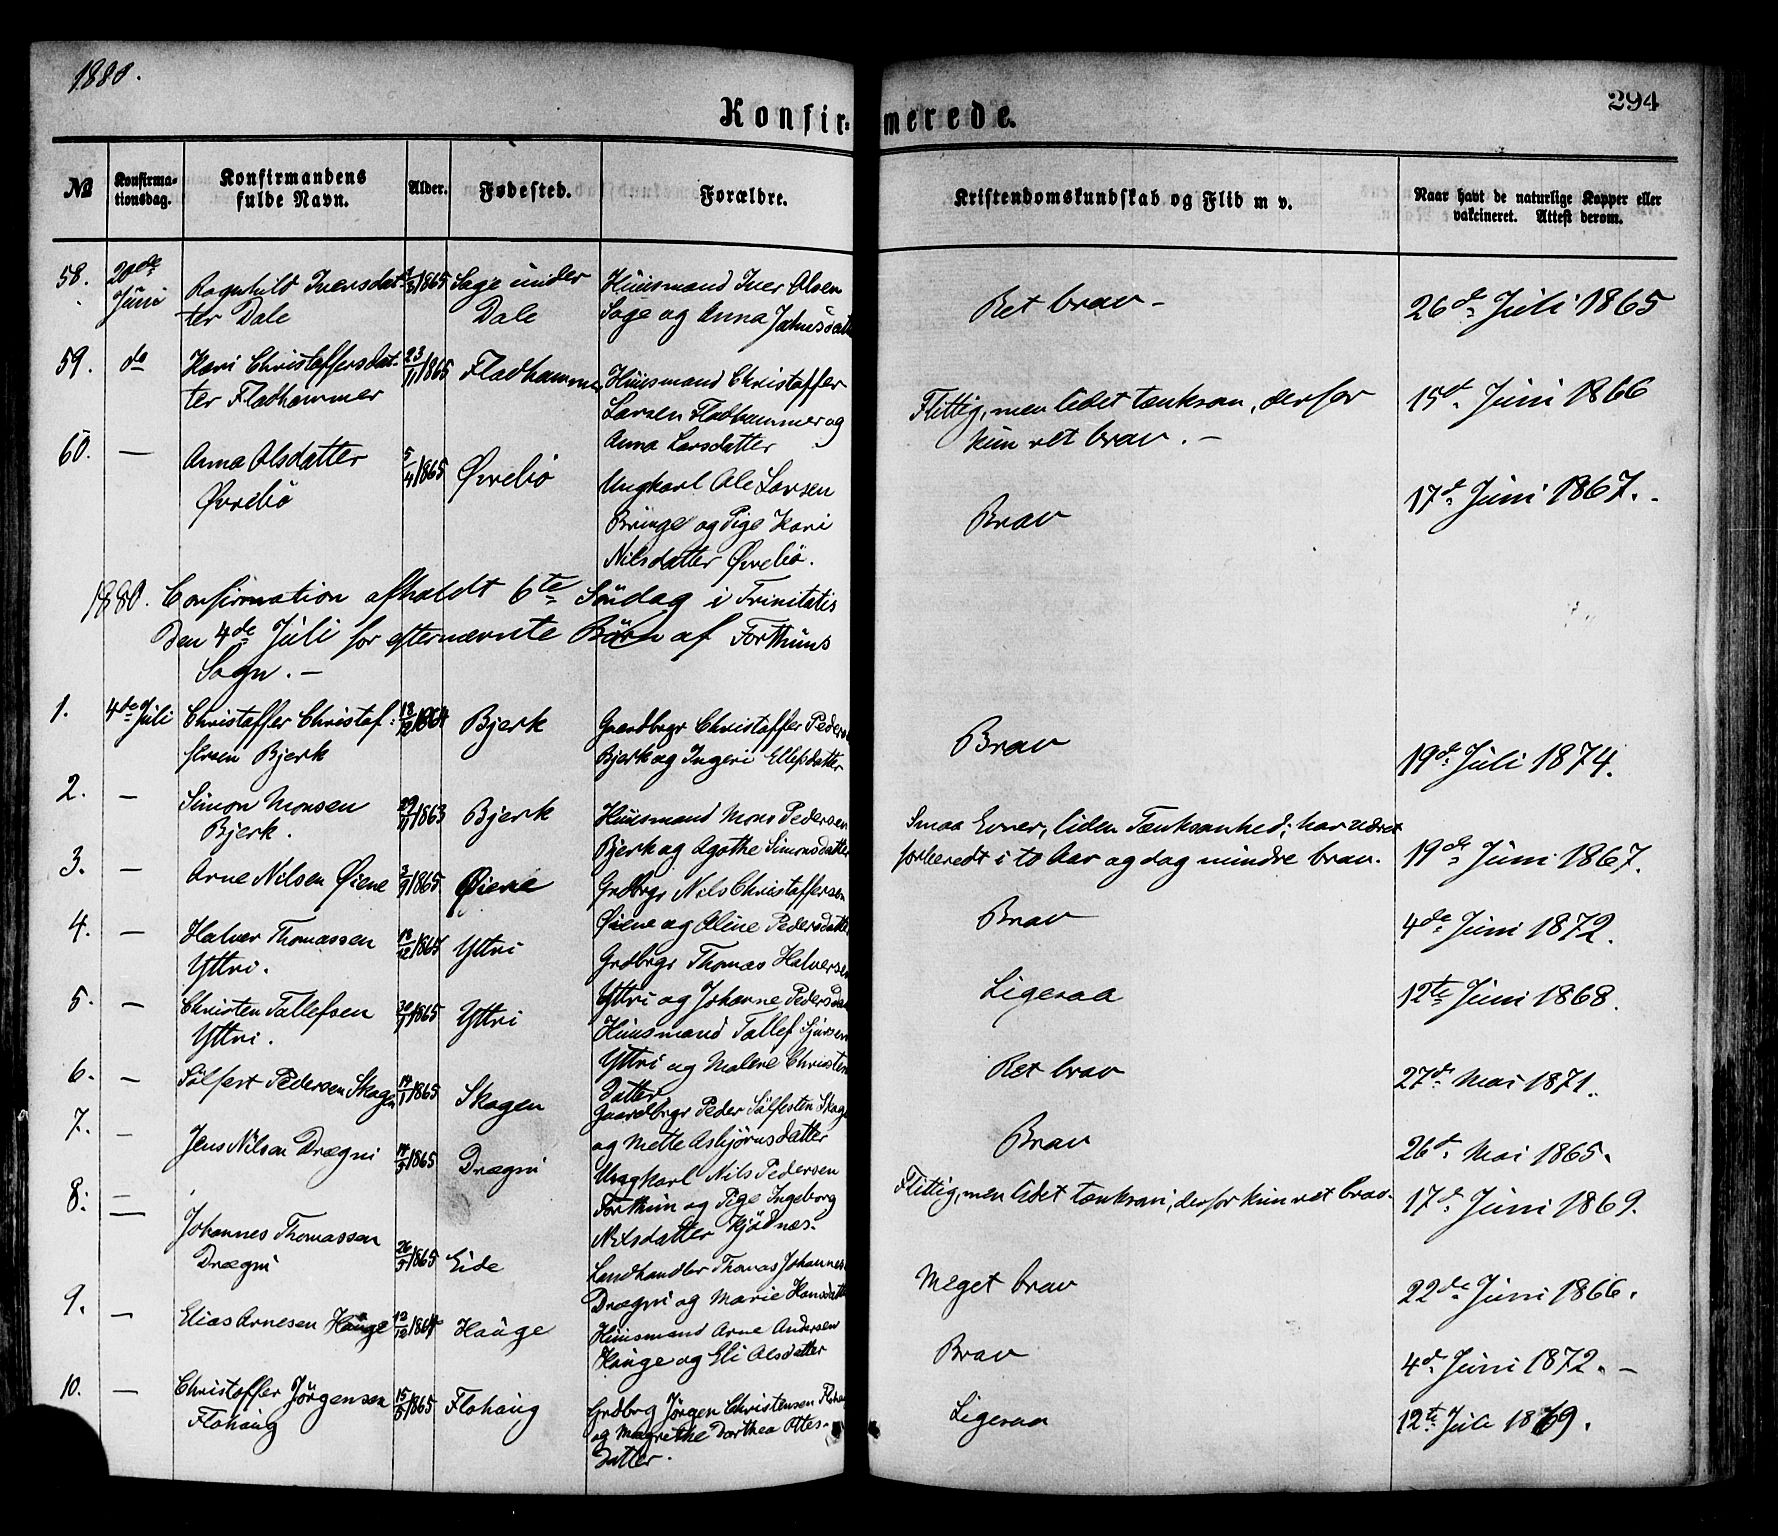 1880.
294
Konfir= merede.
No
Konfirma=
tionsdag.
Konfirmandens
fulde Navn.
Alder.
Fødested.
Forældre.
Kristendomskundskab og Flid m v.
Naar havt de naturlige Kopper eller
vakcineret. Attest derom.
58. 20de Juni
Ragnhild Iversdat-
ter Dale
1865
Sage under
Dale
Huusmand Iver Olsen
Sage og Anna Jahnsdatt
Ret brav -
26d. Juli 1865
59. do
Kari Christoffersdat-
ter Fladhammer
23/11 1865
Fladhammer
Huusmand Christoffer
Larsen Fladhammer og
Anna Larsdatter
Flittig, men lidet tænksom, derfor
kun ret brav. -
15d. Juni 1866
60. —
Anna Olsdatter
Øvrebö
5/4 1865
Øvrebö
Ungkarl Ole Larsen
Bringe og Pige Kari
Nilsdatter Øvrebö.
Brav
17d. Juni 1867. -
1880. Confirmation afholdt 6te Söndag i Trinitatis
Den 4de Juli for efternævnte Börn af Forthuns
Sogn. -
1. 4de Juli
Christoffer Christof-
fersen Bjerk
1864
Bjerk
Gaardbrgr Christoffer Peders
Bjerk og Ingeri Ellefsdatter
Brav
19d. Juli 1874.
2. —
Simon Monsen
Bjerk.
29/11 1863
Bjerk
Huusmand Mons Pedersen
Bjerk og Agathe Simonsdatter
Smaa Evner, liden Tænksomhed; har været
forberedt i to Aar og dog mindre brav.
19de Juni 1867.
3. —
Arne Nilsen Øiene
2/9 1865
Øiene
Grdbrgr Nils Christoffersen
Øiene og Oline Pedersdatte
Brav
4de Juni 1872.
4. —
Halvor Thomassen
Yttri.
1864
Yttri
Grdbrgr Thomas Halvorsen
Yttri og Johanne Pedersda
Ligesaa
12te Juni 1868.
5. —
Christen Tollefsen
Yttri.
1865
Yttri
Huusmand Tollef Sjursen
Yttri og Malene Christen
Datter
Ret brav
27d. Mai 1871.
6. —
Sölfest Pedersen Skagen
1865
Skagen
Gaardbrgr Peder Sölfesten Skage
og Mette Asbjörnsdatter
Brav
26d. Mai 1865.
7. —
Jens Nilsen Drægni
1865
Drægni
Ungkarl Nils Pedersen
Forthun og Pige Ingeborg
Nilsdatter Kjödnes.
Flittig, men lidet tænksom, derfor kun ret brav.
17d. Juni 1869.
8. —
Johannes Thomassen
Drægni
26/5 1865
Eide
Landhandler Thomas Johannes
Drægni og Marie Hansdatte
Meget brav
22de Juni 1866.
9. —
Elias Arnesen Hauge
12/12 1864
Hauge
Huusmand Arne Andersen
Hauge og Eli Olsdatter
Brav
4d. Juni 1872. -
10. —
Christoffer Jörgensen
Flohaug
15/5 1865
Flohaug
Grdbrg Jörgen Christensen Floha
og Magrethe Dorthea Ottes-
Datter.
Ligesaa
12te Juli 1879.